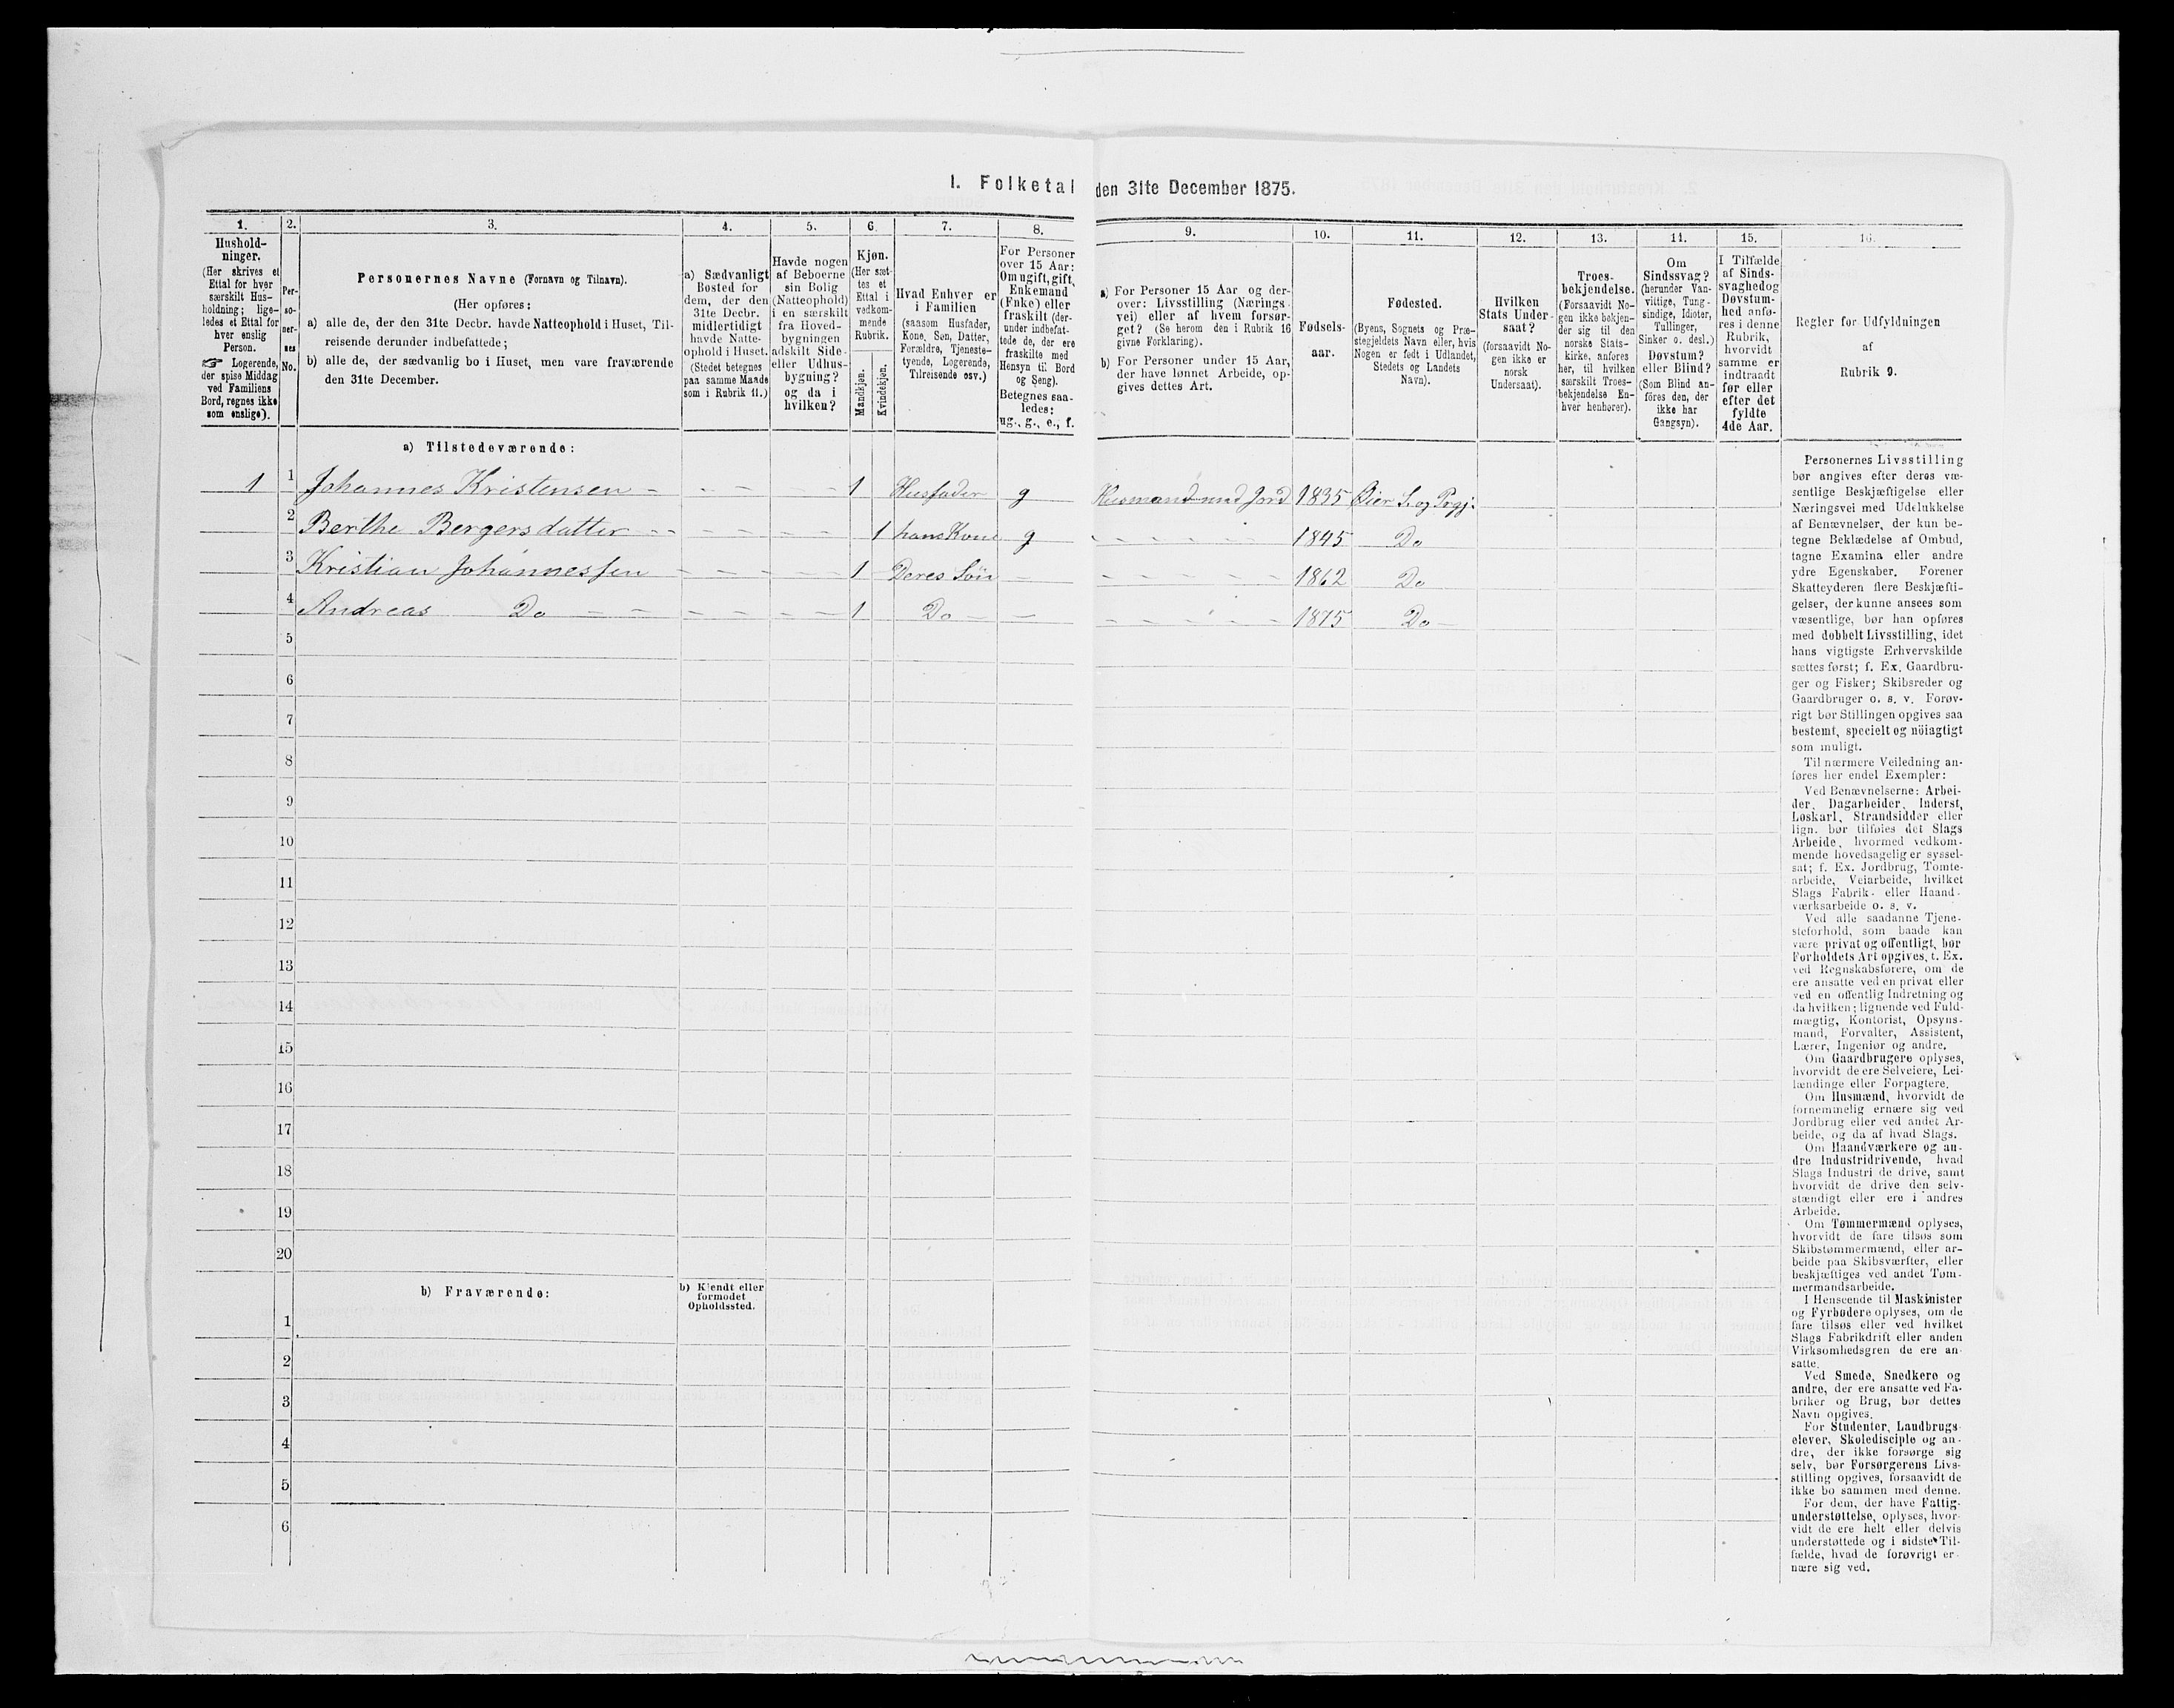 1. Folketal den 31te December 1875.
1.
Hushold-
ninger.
(Her skrives et
Ettal for hver
særskilt Hus-
holdning; lige-
ledes et Ettal for
hver enslig
Person.
☞ Logerende,
der spise Middag
ved Familiens
Bord, regnes ikke
som enslige).
2.
Per-
so-
ner-
nes
No.
3.
Personernes Navne (Fornavn og Tilnavn).
(Her opføres:
a) alle de, der den 31te Decbr. havde Natteophold i Huset, Til-
reisende derunder indbefattede;
b) alle de, der sædvanlig bo i Huset, men vare fraværende
den 31te December.
4.
a) Sædvanligt
Bosted for
dem, der den
31te Decbr.
midlertidigt
havde Natte-
ophold i Huset.
(Stedet betegnes
paa samme Maade
som i Rubrik 11.)
5.
Havde nogen
af Beboerne
sin Bolig
(Natteophold)
i en særskilt
fra Hoved-
bygningen
adskilt Side-
eller Udhus-
bygning?
og da i
hvilken?
6.
Kjøn.
(Her sæt-
tes et
Ettal i
vedkom-
mende
Rubrik.
Mandkjøn.
Kvindekjøn.
7.
Hvad Enhver er
i Familien
(saasom Husfader,
Kone, Søn, Datter,
Forældre, Tjeneste-
tyende, Logerende,
Tilreisende osv.)
8.
For Personer
over 15 Aar:
Om ugift, gift,
Enkemand
(Enke) eller
fraskilt (der-
under indbefat-
tede de, der ere
fraskilte med
Hensyn til Bord
og Seng).
Betegnes saa-
ledes:
ug., g., e., f.
9.
a) For Personer 15 Aar og der-
over: Livsstilling (Nærings-
vei) eller af hvem forsør-
get? (Se herom den i Rubrik 16
givne Forklaring).
b) For Personer under 15 Aar,
der have lønnet Arbeide, op-
gives dettes Art.
10.
Fødsels-
aar.
11.
Fødested.
(Byens, Sognets og Præ-
stegjeldets Navn eller, hvis
Nogen er født i Udlandet,
Stedets og Landets
Navn).
12.
Hvilken
Stats Under-
saat?
(forsaavidt No-
gen ikke er
norsk
Undersaat).
13.
Troes-
bekjendelse.
(Forsaavidt No-
gen ikke bekjen-
der sig til den
norske Stats-
kirke, anføres
her, til hvilken
særskilt Troes-
bekjendelse En-
hver henhører).
14.
Om
Sindssvag?
(herunder Van-
vittige, Tung-
sindige, Idioter,
Tullinger,
Sinker o. desl.)
Døvstum?
eller Blind?
(Som Blind an-
føres den, der
ikke har
Gangsyn).
15.
I Tilfælde
af Sinds-
svaghed og
Døvstum-
hed anfø-
res i denne
Rubrik,
hvorvidt
samme er
indtraadt
før eller
efter det
fyldte
4de Aar.
16.
Regler for Udfyldningen
af
Rubrik 9.
a) Tilstedeværende:
1 1 Johannes Kristensen 1 Husfader g Husmand med Jord 1835 Øier S. og Prgj:
2 Berthe Bergersdatter 1 hans Kone g 1845 Do
3 Kristian Johannessen 1 Deres Søn 1862 Do
4 Andreas Do 1 Do 1875 Do
5
6
7
8
9
10
11
12
13
14
15
16
17
18
19
20
b) Fraværende:
b) Kjendt eller
formodet
Opholdssted.
1
2
3
4
5
6
Personernes Livsstilling
bør angives efter deres væ-
sentlige Beskjæftigelse eller
Næringsvei med Udelukkelse
af Benævnelser, der kun be-
tegne Beklædelse af Ombud,
tagne Examina eller andre
ydre Egenskaber. Forener
Skatteyderen flere Beskjæfti-
gelser, der kunne ansees som
væsentlige, bør han opføres
med dobbelt Livsstilling, idet
hans vigtigste Erhvervskilde
sættes først; f. Ex. Gaardbru-
ger og Fisker; Skibsreder og
Gaardbruger o. s. v. Forøv-
rigt bør Stillingen opgives saa
bestemt, specielt og nöiagtigt
som muligt.
Til nærmere Veiledning an-
føres her endel Exempler:
Ved Benævnelserne: Arbei-
der, Dagarbeider, Inderst,
Løskarl, Strandsidder eller
lign. bør tilføies det Slags
Arbeide, hvormed vedkom-
mende hovedsagelig er syssel-
sat; f. Ex. Jordbrug, Tomte-
arbeide, Veiarbeide, hvilket
Slags Fabrik- eller Haand-
værksarbeide o. s. v.
Ved alle saadanne Tjene-
steforhold, som baade kan
være privat og offentligt, bør
Forholdets Art opgives, t. Ex.
ved Regnskabsførere, om de
ere ansatte ved en privat eller
ved en offentlig Indretning og
da hvilken; lignende ved Fuld-
mægtig, Kontorist, Opsyns-
mand, Forvalter, Assistent,
Lærer, Ingeniør og andre.
Om Gaardbrugere oplyses,
hvorvidt de ere Selveiere, Lei-
lændinge eller Forpagtere.
Om Husmænd, hvorvidt de
fornemmelig ernære sig ved
Jordbrug eller ved andet Ar-
beide, og da af hvad Slags.
Om Haandværkere og an-
dre Industridrivende, hvad
Slags Industri de drive, samt
hvorvidt de drive den selv-
stændigt eller ere i andres
Arbeide.
Om Tømmermænd oplyses,
hvorvidt de fare tilsøs som
Skibstømmermænd, eller ar-
beide paa Skibsværfter, eller
beskjæftiges ved andet Tøm-
mermandsarbeide.
I Henseende til Maskinister
og Fyrbødere oplyses, om de
fare tilsøs eller ved hvilket
Slags Fabrikdrift eller anden
Virksomhedsgren de ere an-
satte.
Ved Smede, Snedkere og
andre, der ere ansatte ved Fa-
briker og Brug, bør dettes
Navn opgives.
For Studenter, Landbrugs-
elever, Skoledisciple og an-
dre, der ikke forsørge sig
selv, bør Forsørgerens Livs-
stilling opgives, forsaavidt de
ikke bo sammen med denne.
For dem, der have Fattig-
understøttelse, oplyses, hvor-
vidt de ere helt eller delvis
understøttede og i sidste Til-
fælde, hvad de forøvrigt er-
nære sig ved.